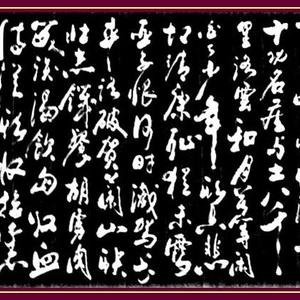 十功名塵與土八千
里路雲和月莫等閒
白了少年頭空悲
切靖康恥猶未雪
臣子恨何時滅駕長
車踏破賀蘭山缺
壯志饑餐胡虜肉
笑談渴飲匈奴血
待從頭收拾舊